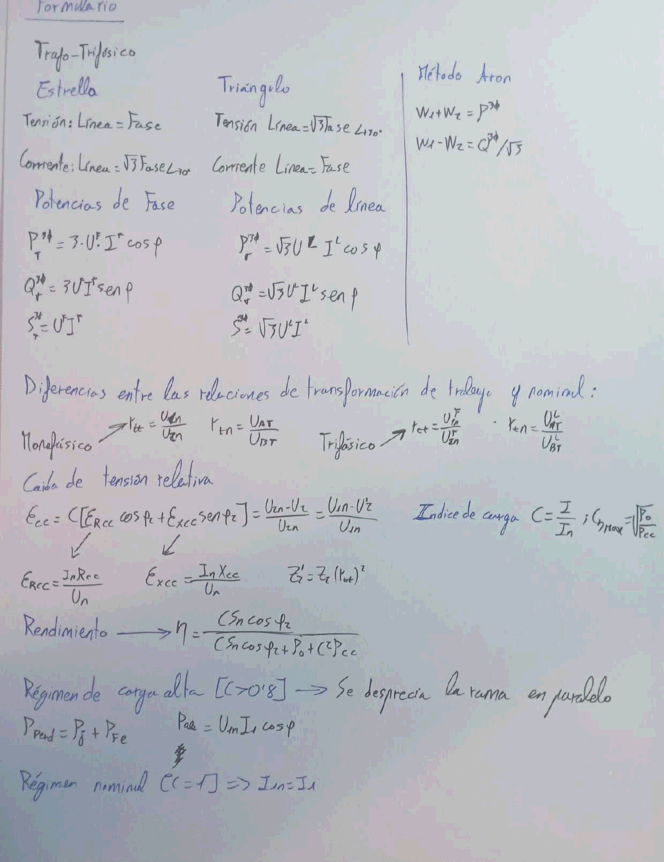 Formulario
Trafo-Trifásico
Estrella
Tensión: Línea = Fase
Corriente: Línea = √3 Fase
Potencias de Fase
P_T^3φ = 3·U^F I^F cos φ
Q_T^3φ = 3U^F I^F sen φ
S_T^3φ = U^F I^F
Triángulo
Tensión Línea = √3 Fase ∠+30º
Corriente Línea = Fase
Potencias de línea
P_T^3φ = √3 U^L I^L cos φ
Q_T^3φ = √3 U^L I^L sen φ
S^3φ = √3 U^L I^L
Método Aron
W1+W2 = P^3φ
W1-W2 = Q^3φ/√3
Diferencias entre las relaciones de transformación de trabajo y nominal:
Monofásico → r_tt = U_1n/U_2n r_tn = U_AT/U_BT Trifásico → r_tt = U_1n^F/U_2n^F · r_tn = U_AT^L/U_BT^L
Caída de tensión relativa
Ɛcc = C[ƐRcc cos φ2 + ƐXcc sen φ2] = (U2n-U2)/U2n = (U1n-U'2)/U1n Indice de carga C = I/In ; Cηmax = √(Po/Pcc)
ƐRcc = In Rcc/Un ƐXcc = In Xcc/Un Z'2 = Z2 (rtt)²
Rendimiento → η = C Sn cos φ2/(C Sn cos φ2 + Po + C² Pcc)
Régimen de carga alta [C>0'8] → Se desprecia la rama en paralelo
P_Perd = Pj + PFe Pab = U1n I1 cos φ
Régimen nominal [C=1] => I1n = I1